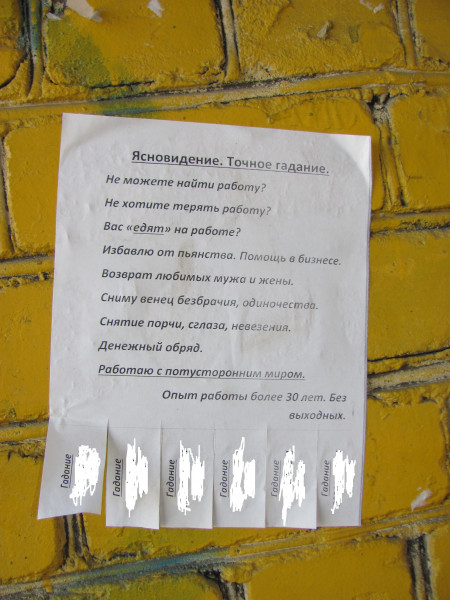 Ясновидение. Точное гадание.
Не можете найти работу?
Не хотите терять работу?
Вас «едят» на работе?
Избавлю от пьянства. Помощь в бизнесе.
Возврат любимых мужа и жены.
Сниму венец безбрачия, одиночества.
Снятие порчи, сглаза, невезения.
Денежный обряд.
Работаю с потусторонним миром.
Опыт работы более 30 лет. Без
выходных.
Гадание
Гадание
Гадание
Гадание
Гадание
Гадание